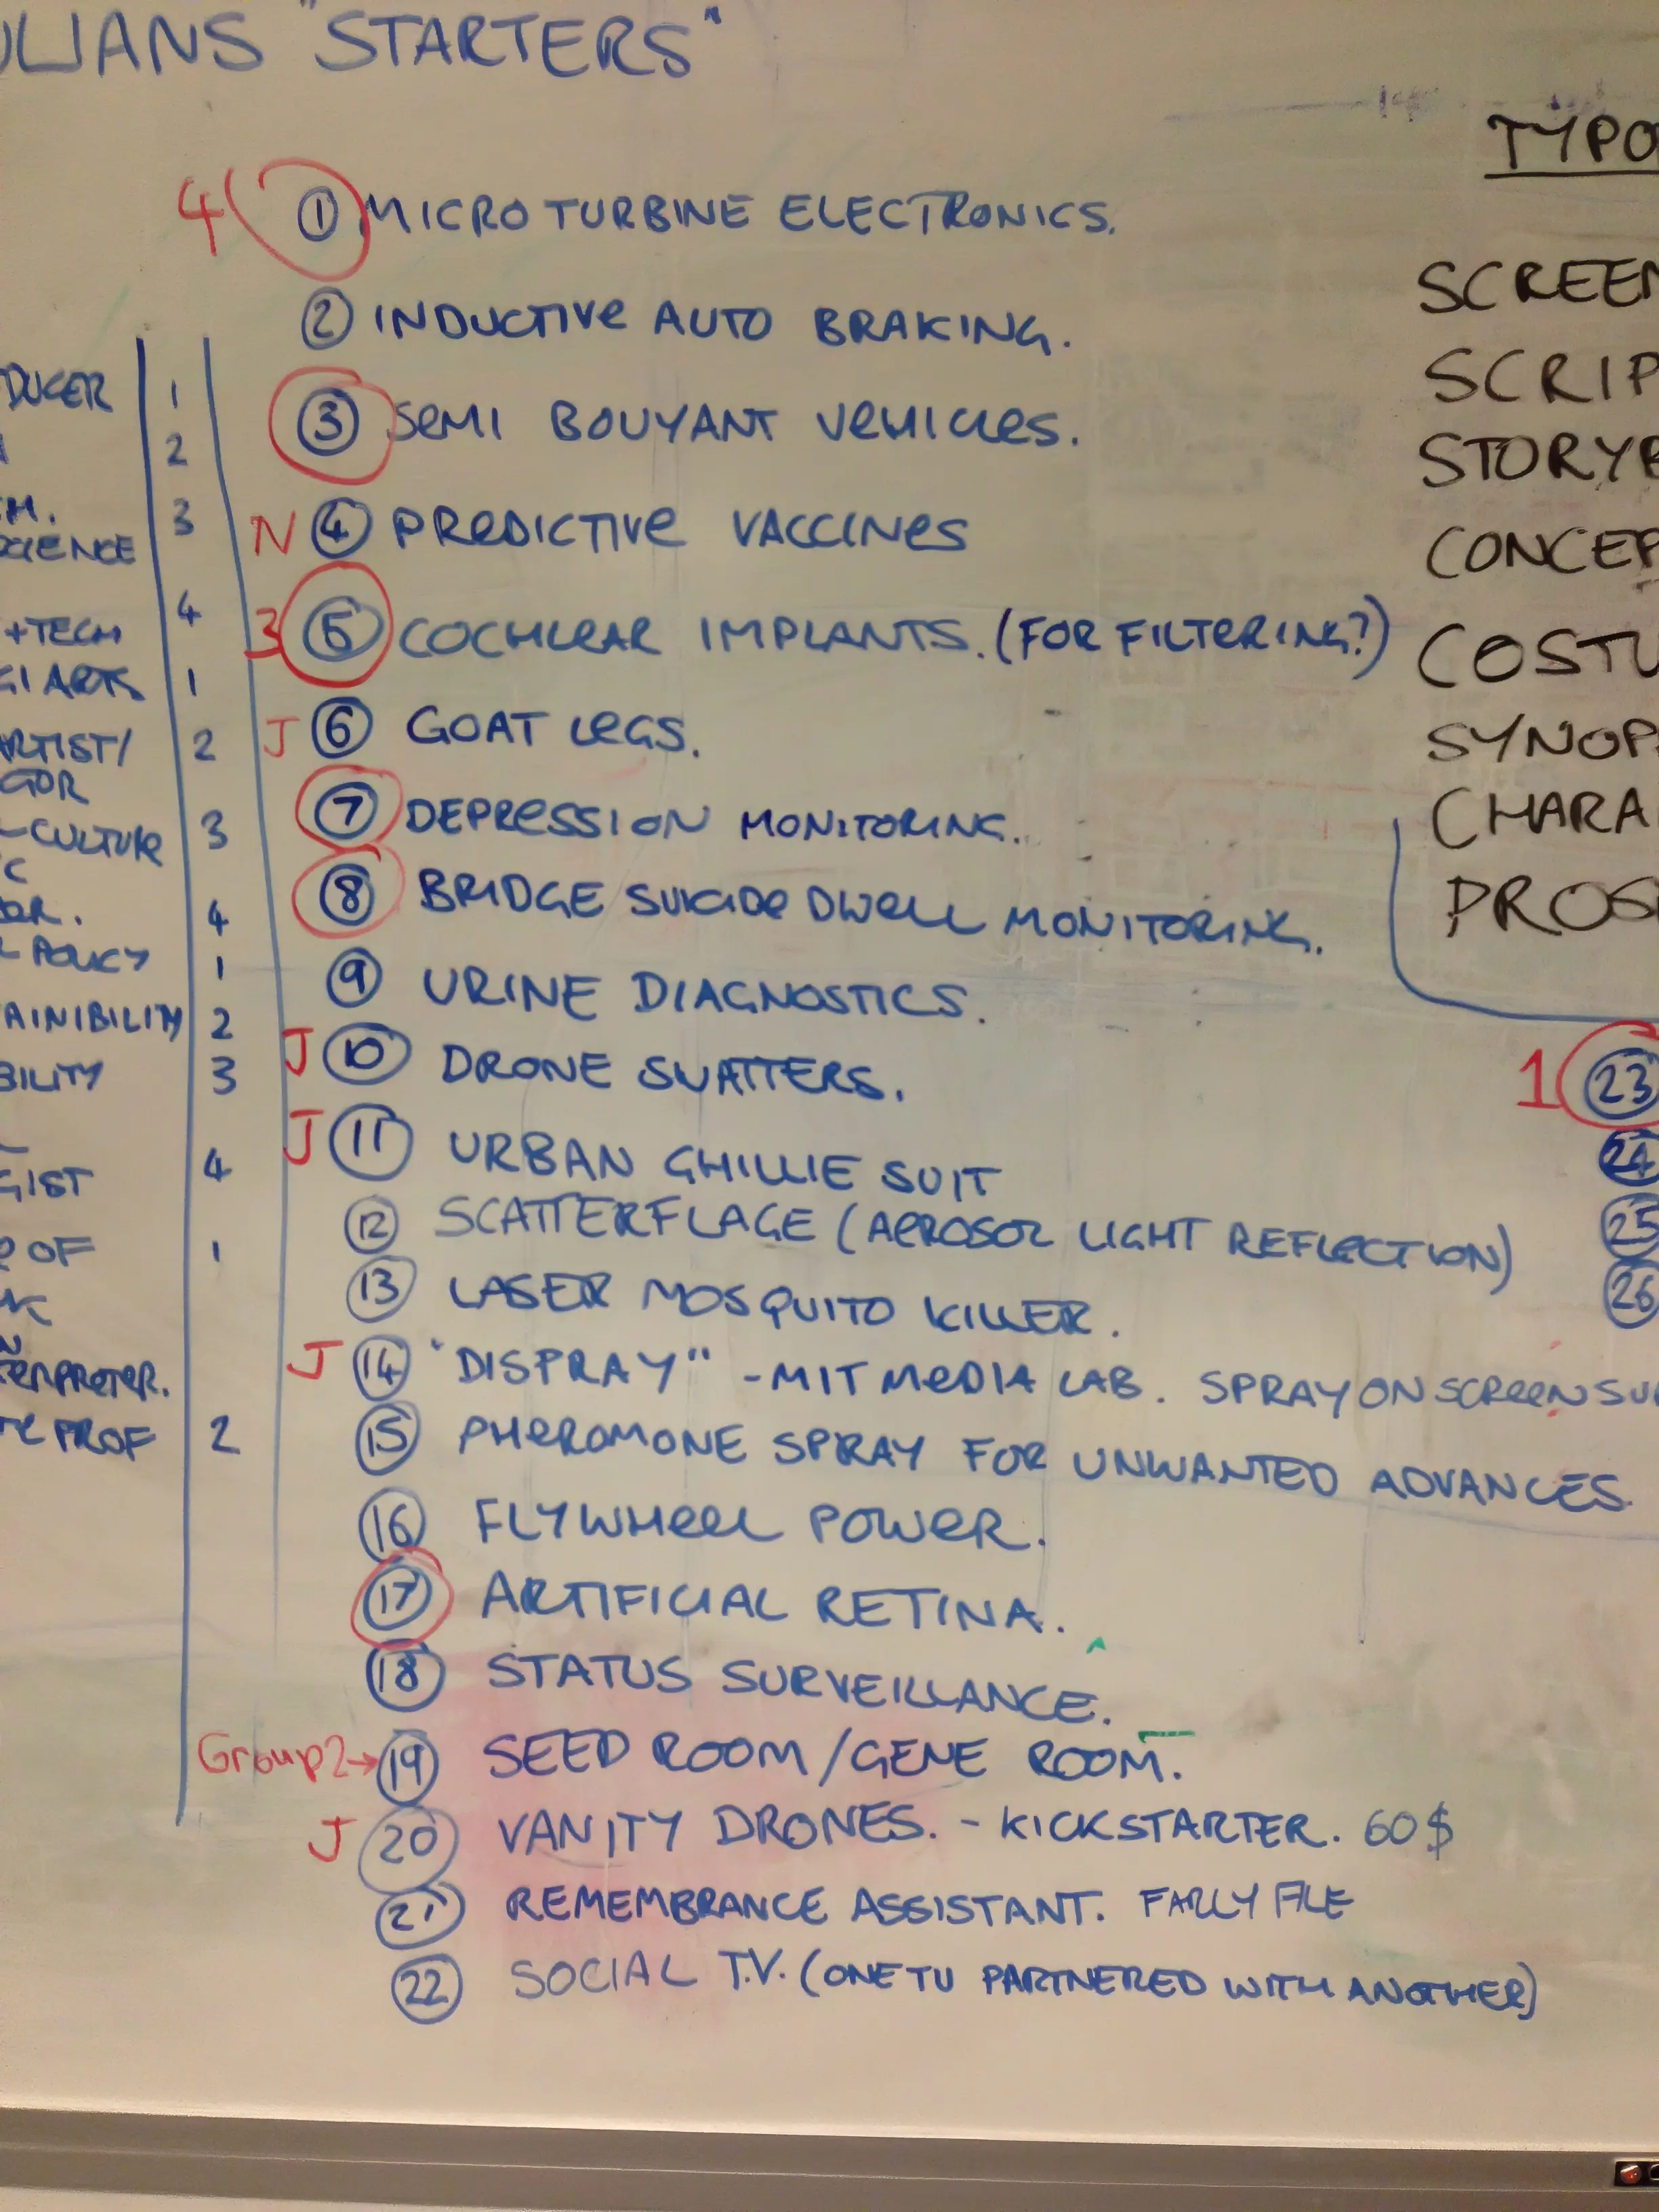 ULIANS "STARTERS"
4 1 MICRO TURBINE ELECTRONICS.
2 INDUCTIVE AUTO BRAKING.
3 SEMI BOUYANT VEHICLES.
N 4 PREDICTIVE VACCINES
3 5 COCHLEAR IMPLANTS. (FOR FILTERING?)
J 6 GOAT LEGS.
7 DEPRESSION MONITORING.
8 BRIDGE SUICIDE DWELL MONITORING.
9 URINE DIAGNOSTICS.
J 10 DRONE SWATTERS.
J 11 URBAN GHILLIE SUIT
12 SCATTERFLAGE (AEROSOL LIGHT REFLECTION)
13 LASER MOSQUITO KILLER.
J 14 "DISPRAY" - MIT MEDIA LAB. SPRAY ON SCREEN SU
15 PHEROMONE SPRAY FOR UNWANTED ADVANCES.
16 FLYWHEEL POWER.
17 ARTIFICIAL RETINA.
18 STATUS SURVEILLANCE.
Group 2→ 19 SEED ROOM/GENE ROOM.
J 20 VANITY DRONES. - KICKSTARTER. 60$
21 REMEMBRANCE ASSISTANT. FARLY FILE
22 SOCIAL T.V. (ONE TV PARTNERED WITH ANOTHER)
DUCER 1
2
CH. 3
SCIENCE
4
+TECH
GI ARTS 1
ARTIST/ 2
GOR
-CULTURE 3
C
OR. 4
POLICY 1
AINIBILITY 2
BILITY 3
GIST 4
OF 1
ERPRETER.
PROF 2
TYPO
SCREEN
SCRIP
STORYB
CONCEP
COSTU
SYNOP
CHARA
PROS
1 23
24
25
26